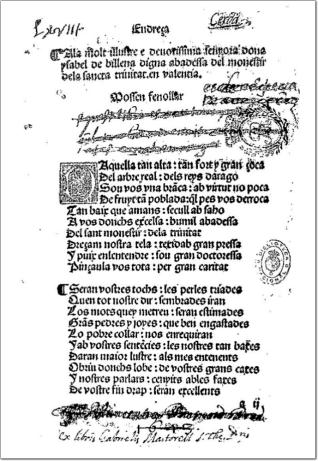 Lxviiij
Endreça
Alla molt illustre e deuotissima senyora dona
ysabel de billena digna abadessa del monestir
dela sancta trinitat. en valencia.
Mossen fenollar
Aquella tan alta: tan fort y gran çoca
Del arbre real: dels reys darago
Sou vos vna brãca: ab virtut no poca
De fruyt tã poblada: ql pes vos derroca
Tan baix que amans: secull ab saho
A vos donchs excelsa: humil abadessa
Del sant monestir: dela trinitat
Dreçam nostra tela: teixida ab gran pressa
Y puix enlentendre: sou gran doctoressa
Pinçaula vos tota: per gran caritat
Seran vostres tochs: les perles triades
Quen tot nostre dir: sembrades iran
Los mots que y metreu: seran estimades
Grãs pedres y joyes: que ben engastades
Lo pobre collar: nos enrequiran
Y ab vostres sentẽcies: les nostres tan baxes
Daran maior lustre: als mes entenents
Obriu donchs lobe: de vostres grans caxes
Y nostres parlars: cenyits ables faxes
De vostre fin drap: seran excellents
a ij
Ex libris Gabrielis Martorell